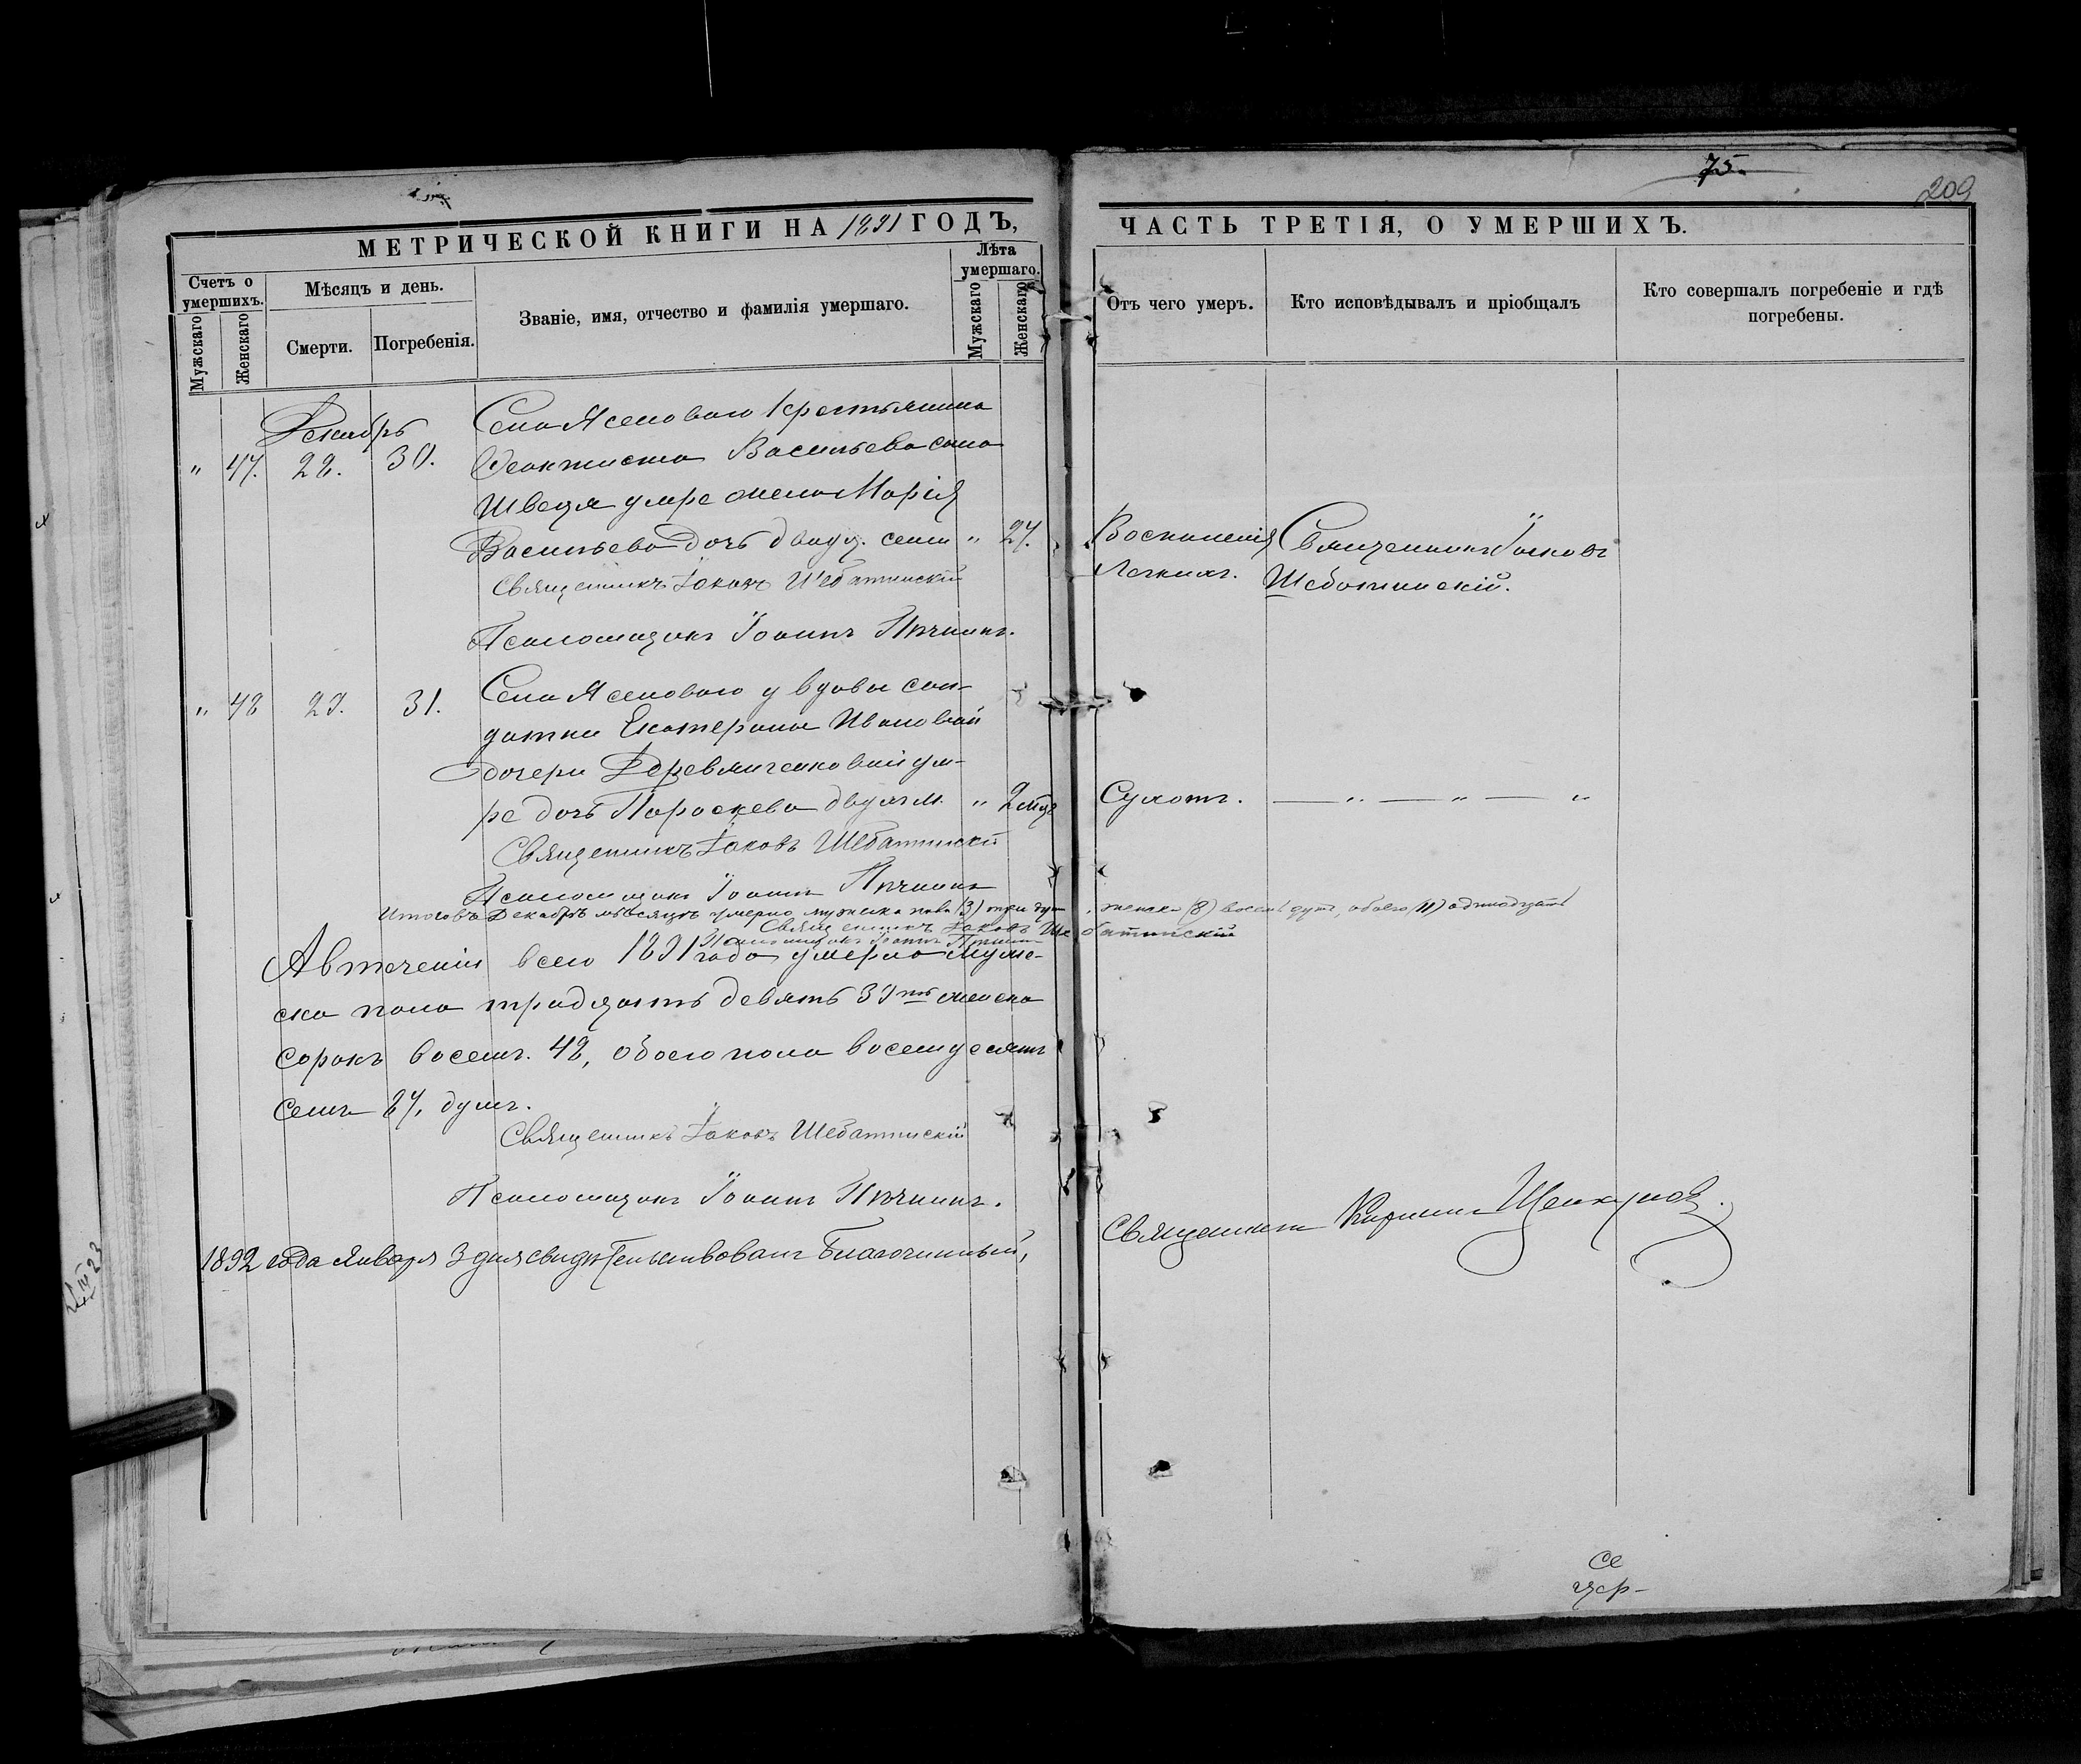 75.
209
МЕТРИЧЕСКОЙ КНИГИ НА 1891 ГОДЪ,
ЧАСТЬ ТРЕТІЯ, О УМЕРШИХЪ.
Счетъ о умершихъ.
Мужскаго
Женскаго
Мѣсяцъ и день.
Смерти.
Погребенія.
Званіе, имя, отчество и фамилія умершаго.
Лѣта умершаго.
Мужскаго
Женскаго
Отъ чего умеръ.
Кто исповѣдывалъ и пріобщалъ
Кто совершалъ погребеніе и гдѣ погребены.
Декабрь
" 47. 28. 30.
Села Ясеноваго крестьянина
Феоктиста Васильева сына
Швеця умре жена Марія
Васильева дочь двадц. семи " 27.
Воспаленія
Легкихъ.
Священникъ Іаковъ
Шебатинскій.
Священникъ Іаковъ Шебатинскій
Псаломщикъ Іоаннъ Пѣчинъ.
" 48 29. 31.
Села Ясеноваго у вдовы сол-
датки Екатерины Ивановой
дочери Деревянченковой ум-
ре дочь Параскева двухъ м. " 2 мѣц
Сухотъ. — " — " — "
Священникъ Іаковъ Шебатинскій
Псаломщикъ Іоаннъ Пѣчинъ
Итого въ Декабрѣ мѣсяцѣ умерло мужска пола (3) три душ женска (8) восемь душъ, обоего (11) одинадцать
Священникъ Іаковъ Шебатинскій
Псаломщикъ Іоаннъ Пѣчинъ
А втеченіи всего 1891 года умерло муже-
ска пола тридцать девять 39ть женска
сорокъ восемъ. 48, обоего пола восемдесятъ
семъ 87, душъ.
Священникъ Іаковъ Шебатинскій
Псаломщикъ Іоаннъ Пѣчинъ.
1892 года Января 3 дня свидѣтельствовалъ Благочинный,
Священникъ Кириллъ